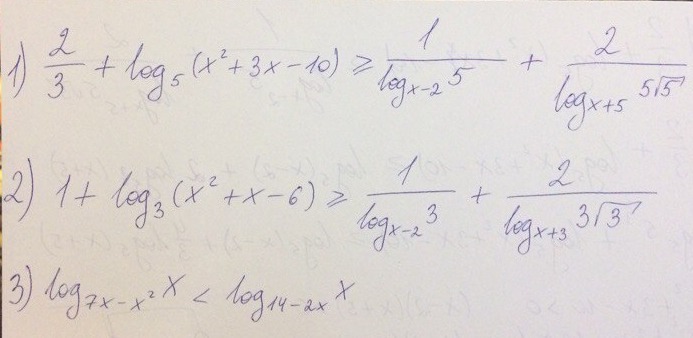 1) 2/3 + log₅(x²+3x−10) ≥ 1/(log_{x−2} 5) + 2/(log_{x+5} 5√5)
2) 1 + log₃(x²+x−6) ≥ 1/(log_{x−2} 3) + 2/(log_{x+3} 3√3)
3) log_{7x−x²} x < log_{14−2x} x